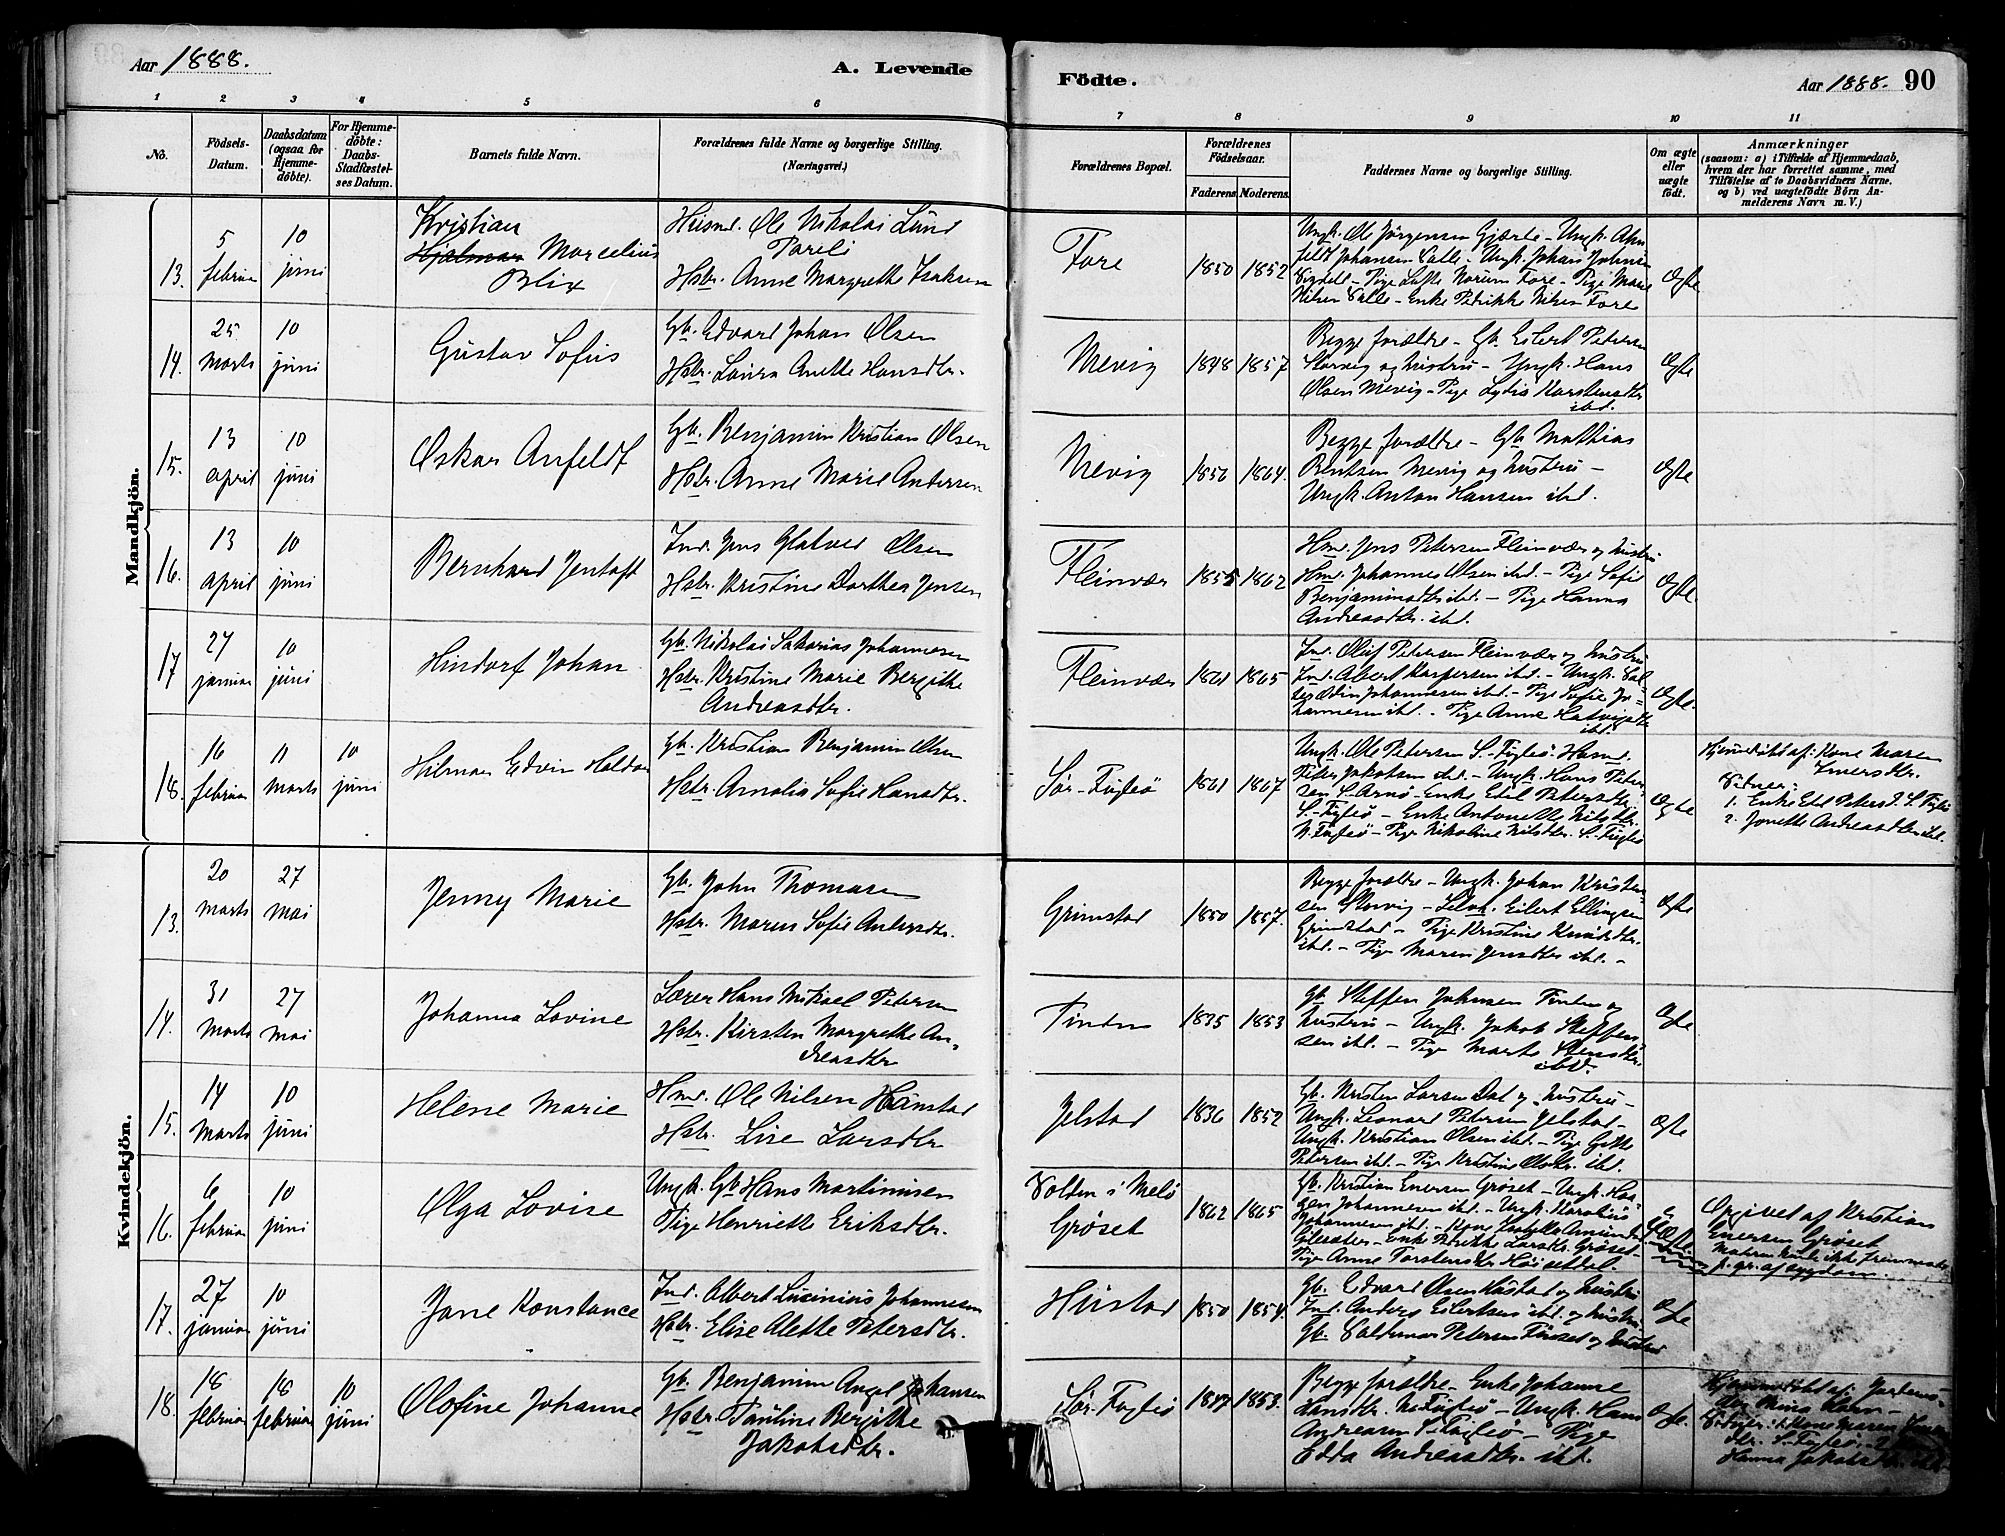 Aar 1888.
A. Levende
Födte.
Aar 1888. 90
1 2 3 4 5 6 7 8 9 10 11
No.
Födsels-Datum.
Daabsdatum (ogsaa for Hjemmedöbte).
For Hjemmedöbte: Daabs-Stadfæstelses Datum.
Barnets fulde Navn.
Forældrenes fulde Navne og borgerlige Stilling. (Næringsvei.)
Forældrenes Bopæl.
Forældrenes Födselsaar.
Faderens. Moderens.
Faddernes Navne og borgerlige Stilling.
Om ægte eller uægte födt.
Anmærkninger
(saasom: a) i Tilfælde af Hjemmedaab, hvem der har forrettet samme, med Tilföielse af to Daabsvidners Navne, og b) ved uægtefödte Börn Anmelderens Navn m. V.)
Mandkjön.
13. 5 februar 10 juni
Kristian
Hjalmar Marcelius
Blix
Husmd. Ole Nikolai Lund
Pareli
Hstr. Anne Margrethe Isaksen
Fore 1850 1852
Ungk. Ole Jörgensen Gjærte - Ungk. Ahn
feldt Johansen Valle - Ungk. Johan Johnsen
Nilsen Valle - Enke Petrikke Nilsen Fore
Ægte
14. 25 marts 10 juni
Gustav Sofus
Gb. Edvard Johan Olsen
Hstr. Laura Anette Hansdtr.
Mevig 1848 1857
Begge forældre - Gb. Eilert Petersen
Storvig og hustru - Ungk. Hans
Olsen Mevig - Pige Lydia Karstensdtr
ibd.
Ægte
15. 13 april 10 juni
Oskar Anfeldt
Gb. Benjamin Kristian Olsen
Hstr. Anne Marie Andersen
Mevig 1856 1864.
Begge forældre - Gb. Mathias
Bentsen Mevig og hustru -
Ungk. Anton Hansen ibd.
Ægte
16. 13 april 10 juni
Bernhard Jentoft
Ind. Jens Glatved Olsen
Hstr. Kristine Dorthea Jensen
Fleinvær 1855 1862
Hmd. Jens Petersen Fleinvær og hustru
Hmd. Johannes Olsen ibd. - Pige Sofie
Benjaminsdtr ibd. - Pige Hanna
Andreasdtr. ibd.
Ægte.
17 27 januar 10 juni
Hindorf Johan
Gb. Nikolai Sakarias Johannesen
Hstr. Kristine Marie Bergithe
Andreasdtr.
Fleinvær 1861 1865
Ind. Oluf Petersen Fleinvær og hustru
Ind. Albert Kaspersen ibd. - Ungk.
Johannesen ibd. - Pige Sofie Jo-
hannesen ibd. - Pige Anne
ibd.
Ægte.
18. 16 februar 11 marts 10 juni
Hilmar Edvin Haldor
Gb. Kristian Benjamin Olsen
Hstr. Amalia Sofie Hansdtr.
Sør-Fugleø 1861 1867
Ungk. Ole Petersen S.-Fugleø. Hmd.
Peter Jakobsen ibd. - Ungk. Hans Peter-
sen S. Arnø - Enke Edel Petersdtr.
S.-Fugleø - Enke Antonette Nilsdtr.
N. Fugleø - Pige Nikoline Nilsdtr. S.-Fugleø
Ægte
Hjemmedöbt af: Kone Maren
Iversdtr.
Vidner:
1. Enke Edel Petersd. S. Fugleø
2. Jonette Andreasdtr ibd.
Kvindekjön.
13. 20 marts 27 mai
Jenny Marie
Gb. John Thomasen
Hstr. Maren Sofie Andersdtr.
Grimstad 1850 1857.
Begge forældre - Ungk. Johan Kristen-
sen Storvig - Selvk. Eilert Ellingsen
Grimstad - Pige Kristine Knudsdtr.
ibd. - Pige Maren Jensdtr ibd. -
Ægte
14. 31 marts 27 mai
Johanna Lovine
Lærer Hans Mikael Petersen
Hstr. Kirsten Margrethe An-
dreasdtr
Tinden 1835 1853
Gb. Steffen Johnsen Tinden og
hustru - Ungk. Jakob Steffen-
sen ibd. - Pige Marta Stensdtr.
ibd.
Ægte
15. 14 marts 10 juni
Helene Marie
Hmd. Ole Nilsen Hønstad
Hstr. Lise Larsdtr
Jelstad 1836 1852
Gb. Kristen Larsen Dal og hustru -
Ungk. Leonard Petersen Jelstad -
Ungk. Kristian Olsen ibd. - Pige Gitte
Petersen ibd. - Pige Kristine Olsdtr. ibd.
Ægte
16. 6 februar 10 juni
Olga Lovise
Ungk. Gb. Hans Martinusen
Pige Henriette Eriksdtr.
Volden i Melø
Grøset
1862 1865
Gb. Kristian Enersen Grøset - Ungk. Haa-
gen Johannesen ibd. - Ungk. Karolius
Johannesen ibd. - Kone
- Enke Larsdtr. Grøset -
Pige Anne Torstensdtr.
Opgivet af Kristian
Enersen Grøset
p. gr. af sygdom.
17. 27 januar 10 juni
Jane Konstance
Ind. Albert Lucinius Johannesen
Hstr. Elise Alette Petersdtr.
Hustad 1850 1854.
Gb. Edvard Olsen Hustad og hustru
Ind. Anders Eilertsen ibd. og hustru
Gb. Valdemar Petersen Furset og hustru
Ægte
18. 18 februar 18 februar 10 juni
Olofine Johanne
Gb. Benjamin Angel Johansen
Hstr. Pauline Bergithe
Jakobsdtr.
Sør-Fugleø 1853.
Begge forældre - Enke Johanne
Hansdtr. N. Fugleø - Ungk. Hans
Andreasen S.-Fugleø - Pige
Edda Andreasdtr. ibd.
Ægte.
Hjemmedöbt af: Jordemo-
der
Hanna Jakobsdtr. ibd.